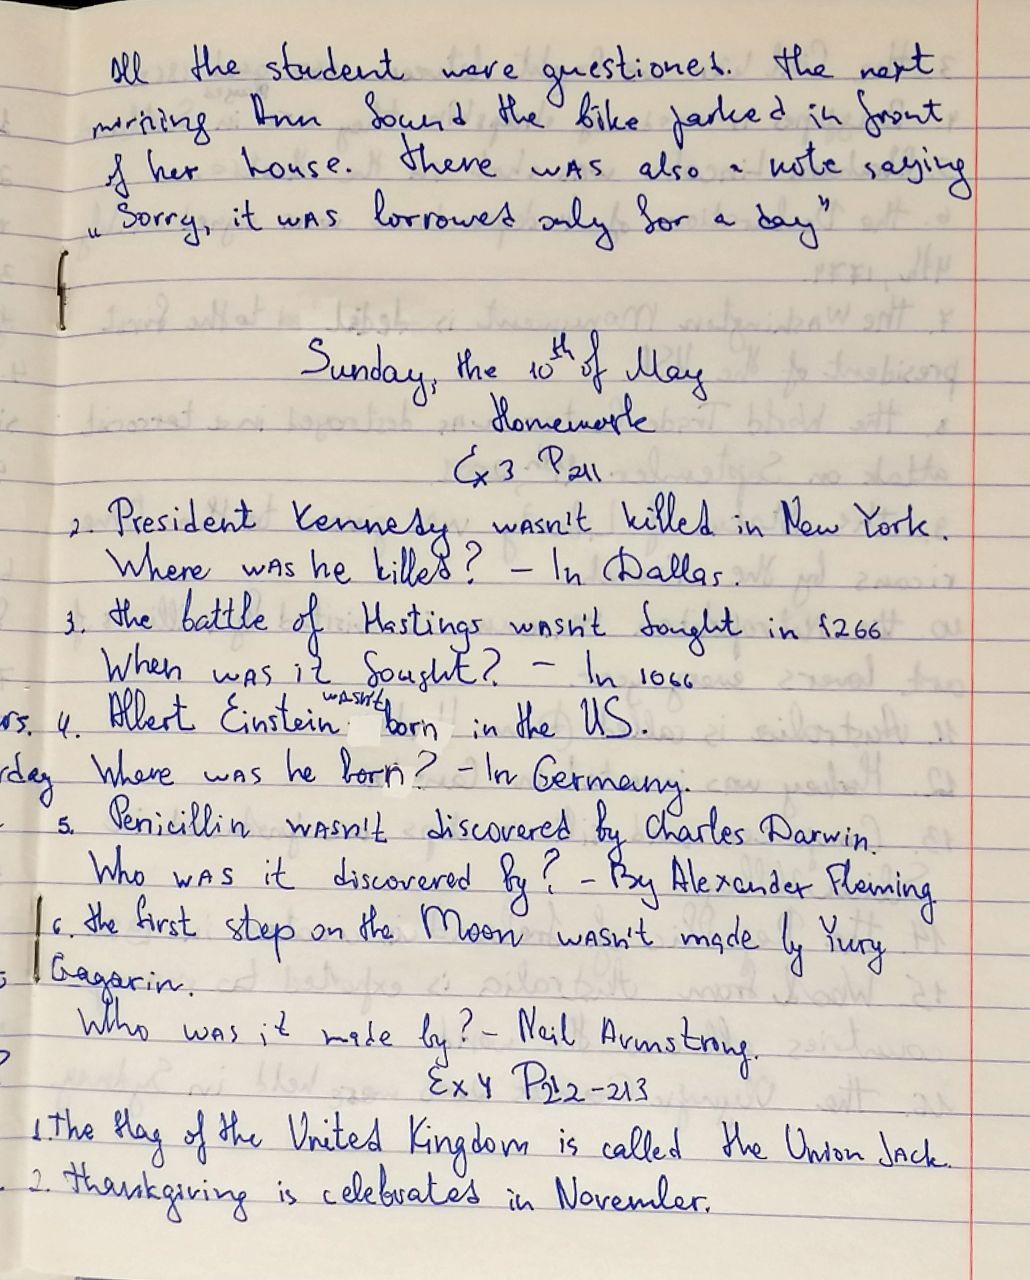 All the student were questioned. The next
morning Ann found the bike parked in front
of her house. There was also a note saying
„Sorry, it was borrowed only for a day"
Sunday, the 10th of May
Homework
Ex 3 P211
2. President Kennedy wasn't killed in New York.
Where was he killed? – In Dallas.
3. The battle of Hastings wasn't fought in 1266
When was it fought? – In 1066
4. Albert Einstein wasn't born in the US.
Where was he born? – In Germany.
5. Penicillin wasn't discovered by Charles Darwin.
Who was it discovered by? – By Alexander Fleming.
6. The first step on the Moon wasn't made by Yury
Gagarin.
Who was it made by? – Neil Armstrong.
Ex 4 P212-213
1. The flag of the United Kingdom is called the Union Jack.
2. Thanksgiving is celebrated in November.